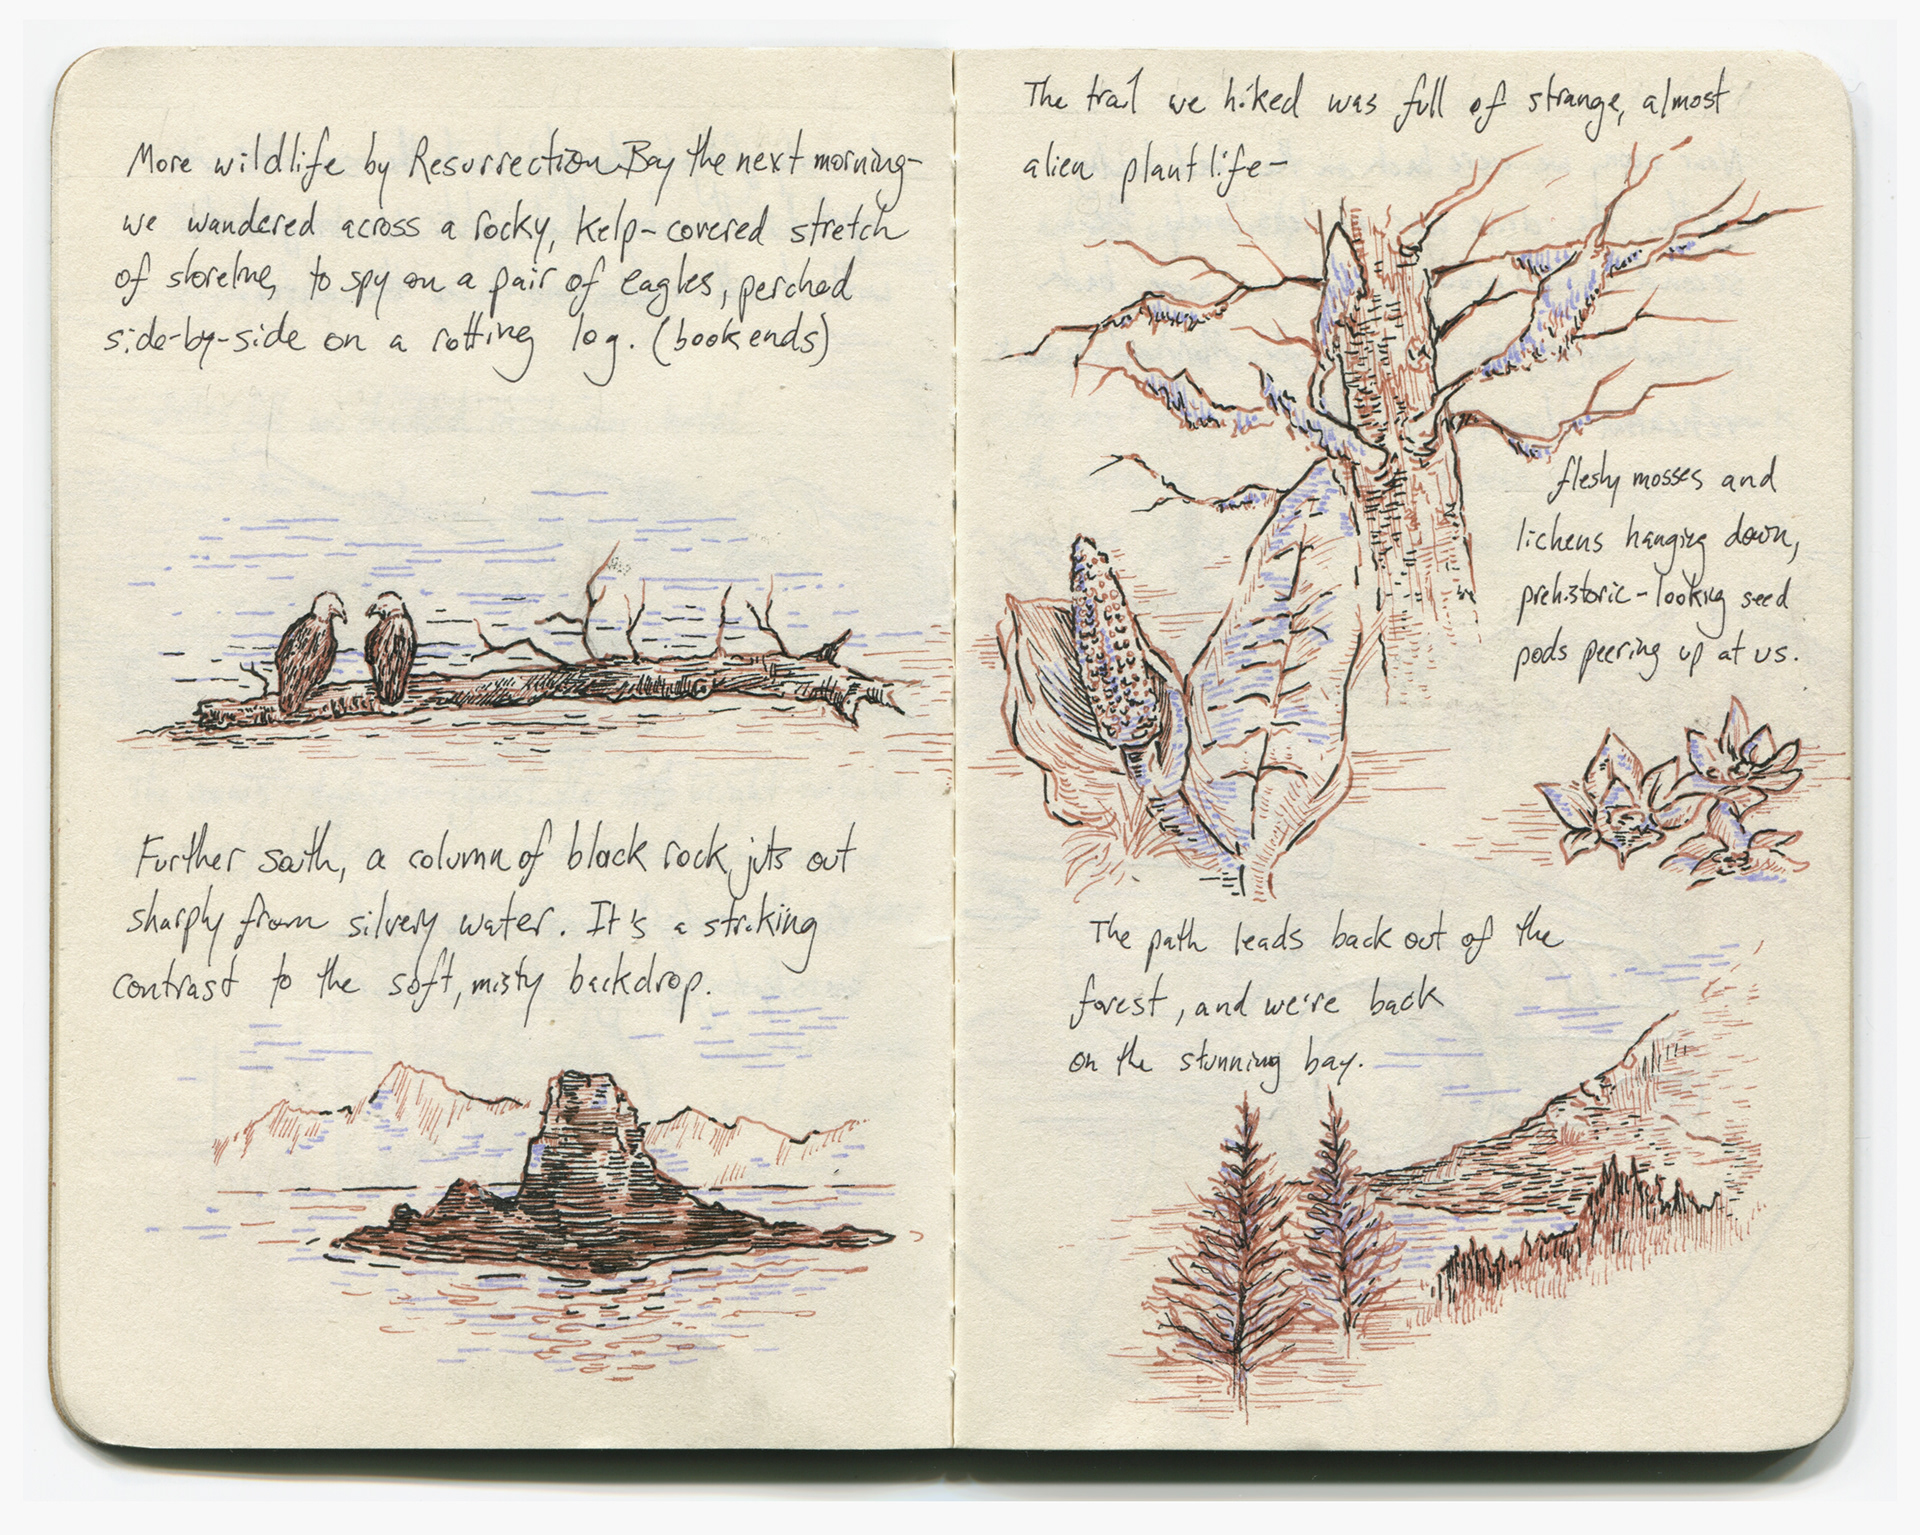 More wildlife by Resurrection Bay the next morning-
we wandered across a rocky, kelp-covered stretch
of shoreline, to spy on a pair of eagles, perched
side-by-side on a rotting log. (bookends)
Further south, a column of black rock juts out
sharply from silvery water. It's a striking
contrast to the soft, misty backdrop.
The trail we hiked was full of strange, almost
alien plant life-
fleshy mosses and
lichens hanging down,
prehistoric-looking seed
pods peering up at us.
The path leads back out of the
forest, and we're back
on the stunning bay.